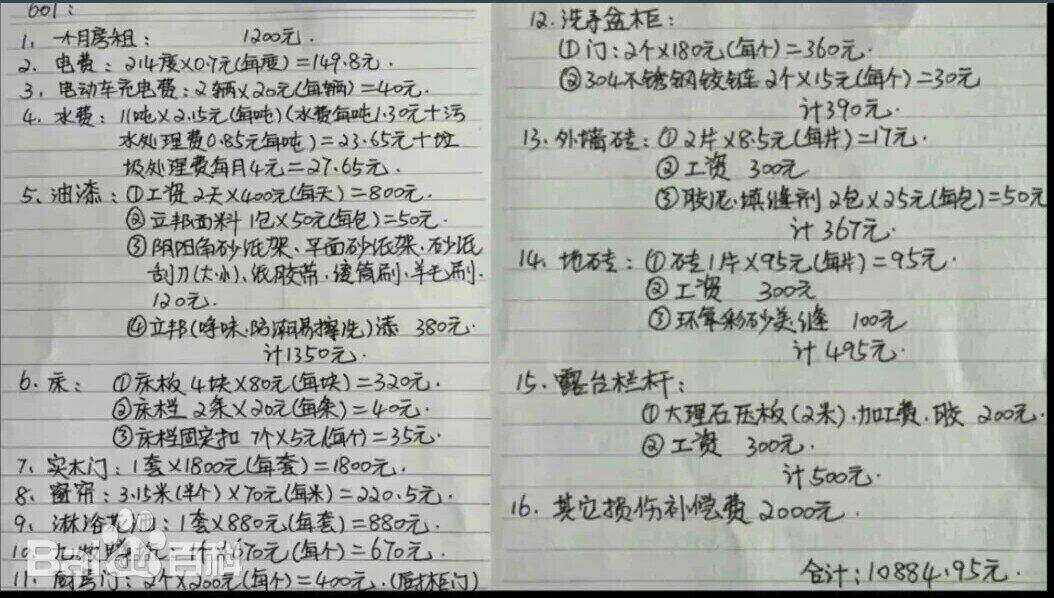 601:
1、一个月房租: 1200元.
2、电费: 214度×0.7元(每度)=149.8元.
3、电动车充电费:2辆×20元(每辆)=40元.
4、水费: 11吨×2.15元(每吨)(水费每吨1.30元+污
水处理费0.85元每吨)=23.65元+垃
圾处理费每月4元=27.65元.
5、油漆:①工资 2天×400元(每天)=800元.
②立邦面料 1包×50元(每包)=50元.
③阴阳角砂纸架、平面砂纸架、砂纸
刮刀(大小)、纸胶带、滚筒刷、羊毛刷.
120元.
④立邦(净味.防潮易擦洗)漆 380元.
计1350元.
6、床: ①床板 4块×80元(每块)=320元.
②床栏 2条×20元(每条)=40元.
③床栏固定扣 7个×5元(每个)=35元.
7、实木门:1套×1800元(每套)=1800元.
8、窗帘:3.15米(半个)×70元(每米)=220.5元.
9、淋浴花洒:1套×880元(每套)=880元.
10 670元(每个)=670元.
11、厨房门:2个×200元(每个)=400元.(厨柜门)
Bai 百科
12.洗手盆柜:
①门:2个×180元(每个)=360元.
②304不锈钢铰链 2个×15元(每个)=30元
计390元.
13.外墙砖:①2片×8.5元(每片)=17元.
②工资 300元
③胶泥.填缝剂 2包×25元(每包)=50元
计367元.
14、地砖:①砖1片×95元(每片)=95元.
②工资 300元
③环氧彩砂美缝 100元
计495元.
15.露台栏杆:
①大理石压板(2米).加工费.胶 200元.
②工资 300元.
计500元.
16、其它损伤补偿费2000元.
合计:10884.95元.